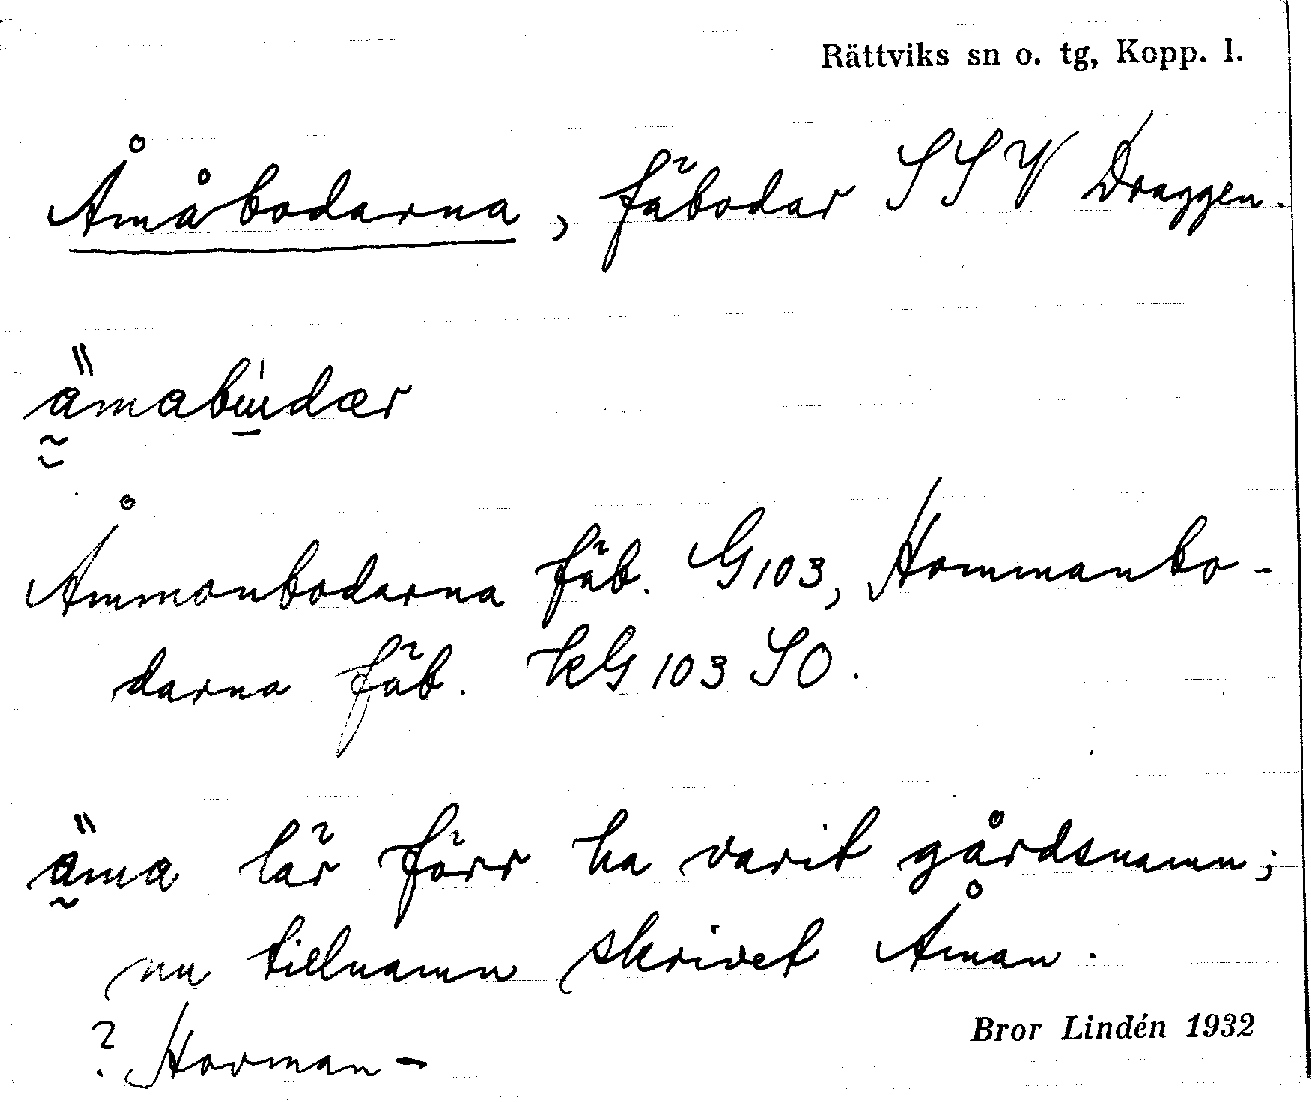 Rättviks sn o. tg, Kopp. l.
Åmåbodarna, fäbodar SSV Draggen.
ämabu̲dær
Åmmonbodarna fäb. G103, Hommanbo-
darna fäb. kG 103 SO.
äma lär förr ha varit gårdsnamn;
nu tillnamn skrivet Åman.
? Horman-
Bror Lindén 1932